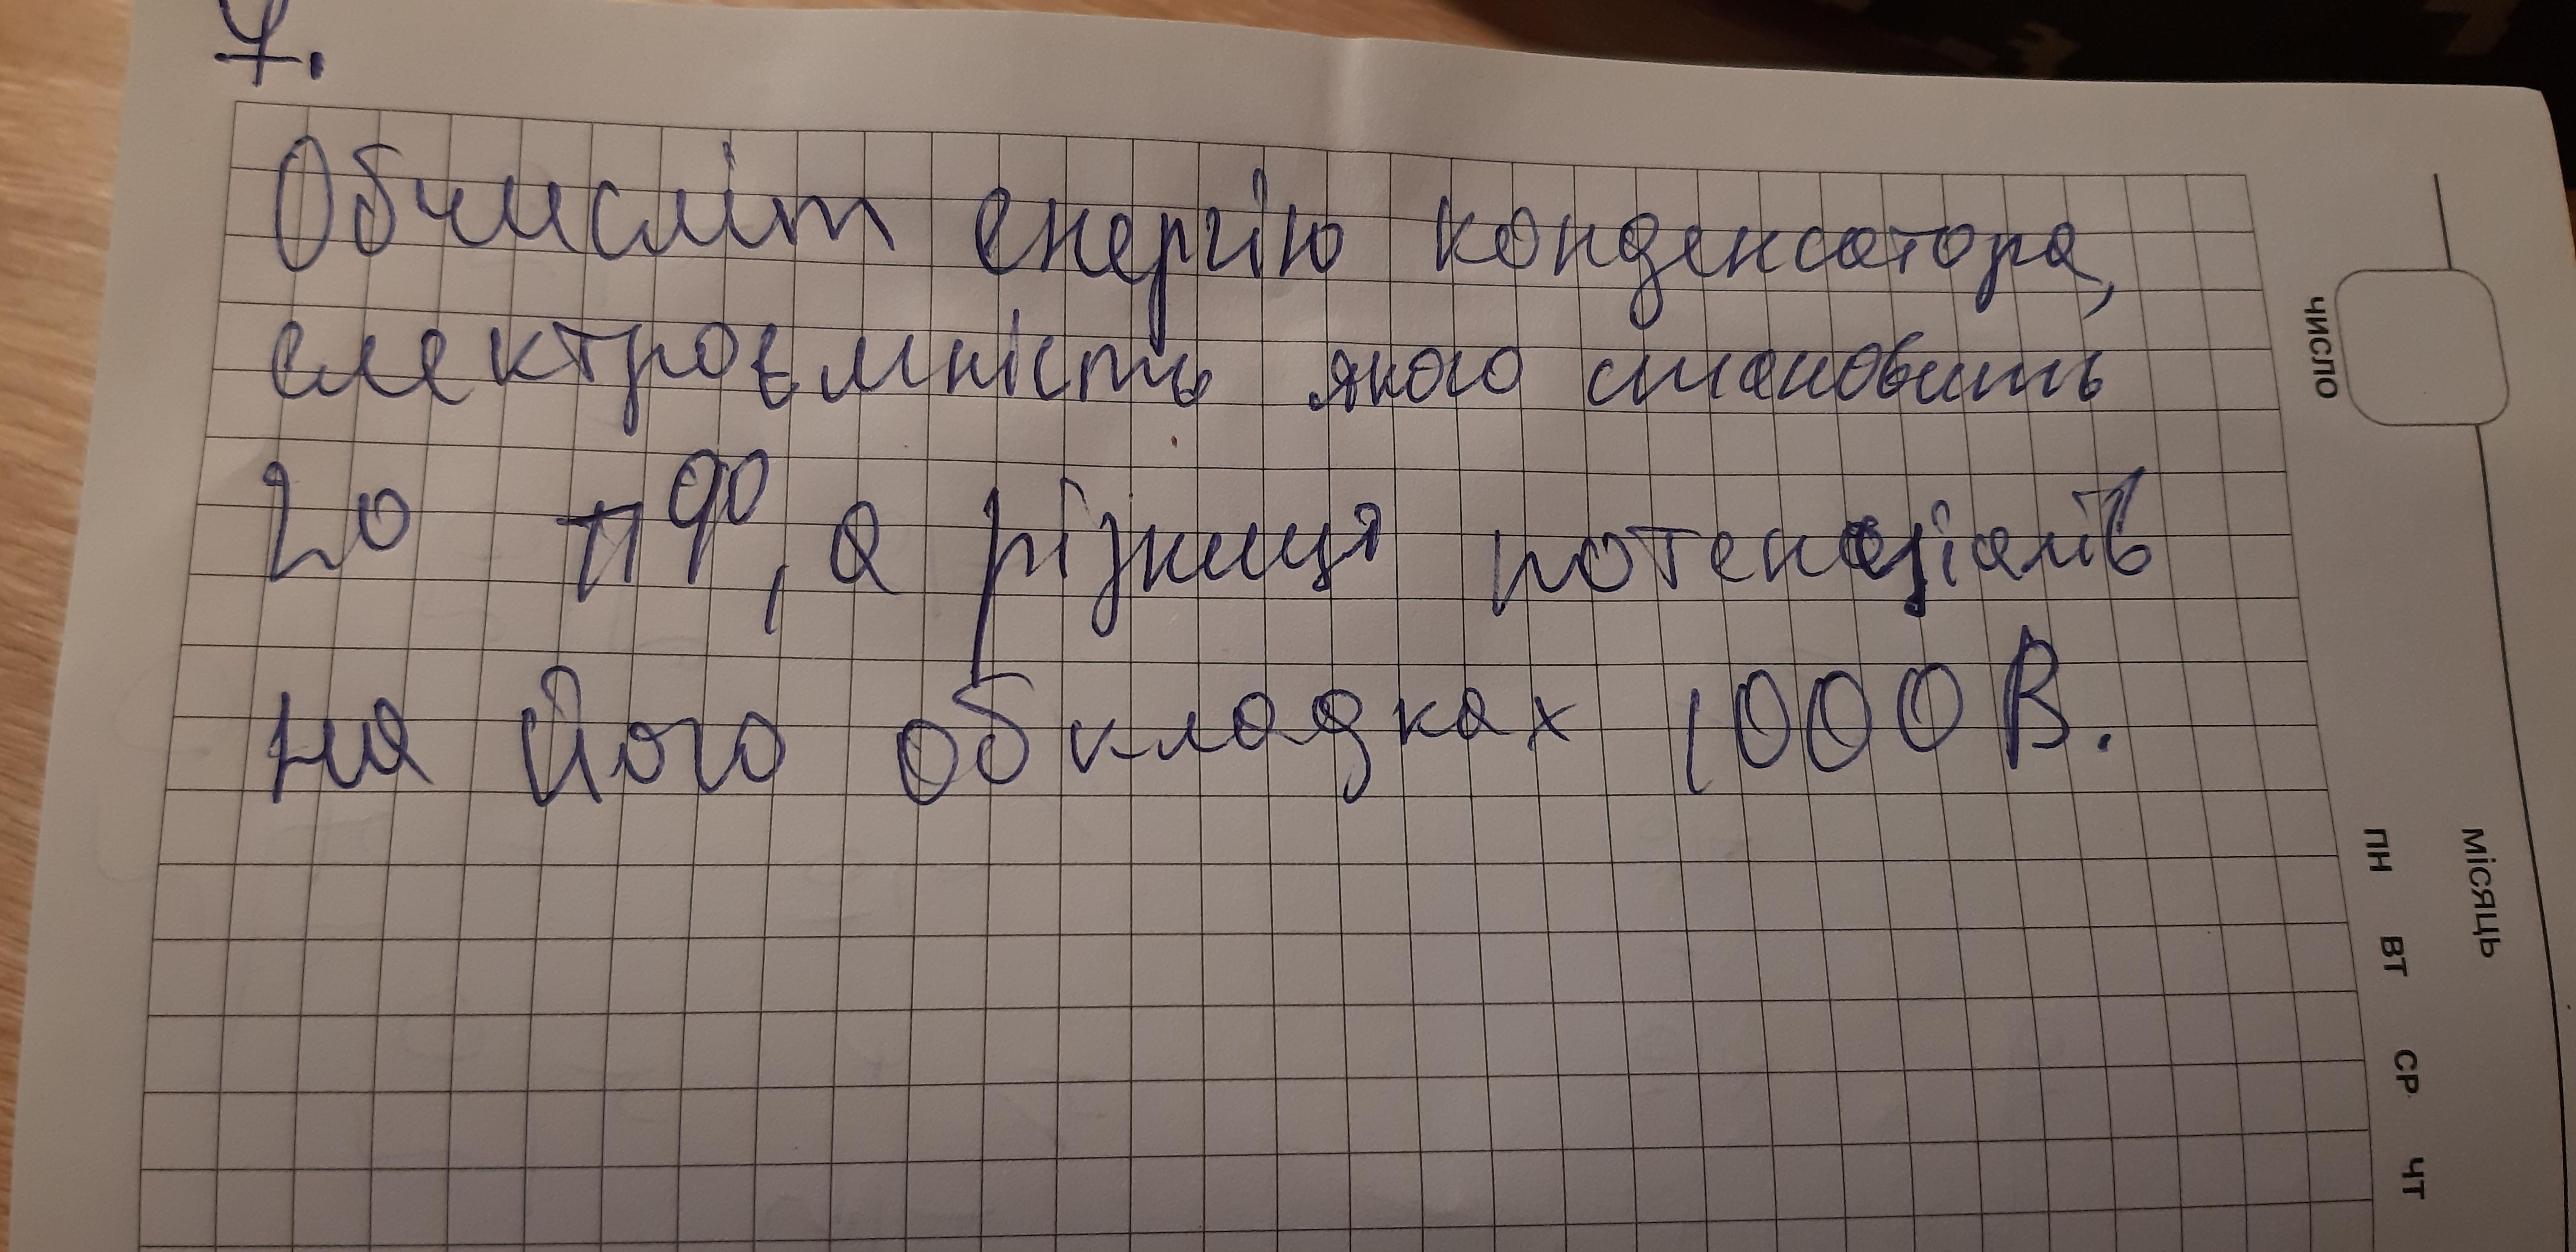 7.
Обчисліт енергію конденсатора,
електроємність якого становить
20 пФ, а різниця потенціалів
на його обкладках 1000 В.
число
місяць
пн вт ср чт